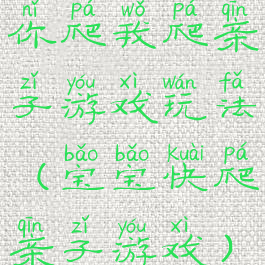 nǐ pá wǒ pá qīn
你爬我爬亲
zǐ yóu xì wán fǎ
子游戏玩法
bǎo bǎo kuài pá
（宝宝快爬
qīn zǐ yóu xì
亲子游戏）